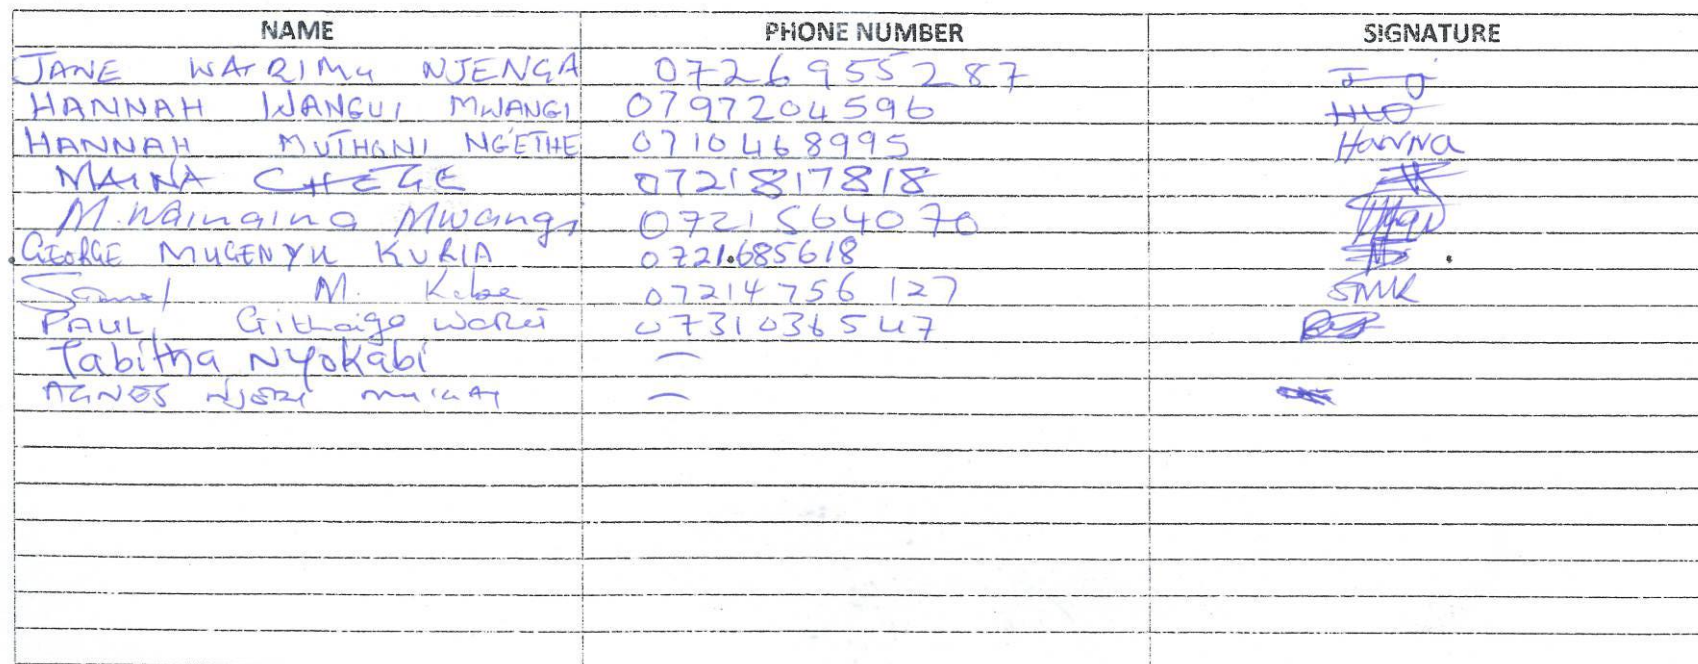 NAME PHONE NUMBER SIGNATURE
JANE WARIMU NJENGA 0726955287
HANNAH WANGUI MWANGI 0797204596
HANNAH MUTHONI NGETHE 0710468995 Hanna
MAINA CHEGE 0721817818
M. Wainaina Mwangi 0721564070
GEORGE MUGENYU KURIA 0721.685618
Samuel M. 07214756127 SMK
PAUL Githaiga 0731036547
Tabitha NYokabi —
AGNES NJERI —